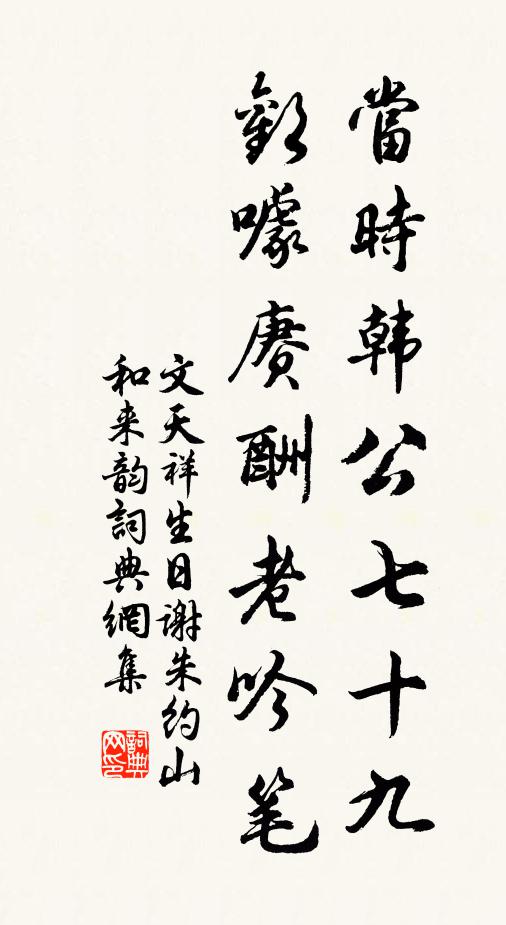 當時韩公七十九
歡噱赓酬老吟笔
文天祥生日谢朱约山
和来韵詞典網集
詞典
网印